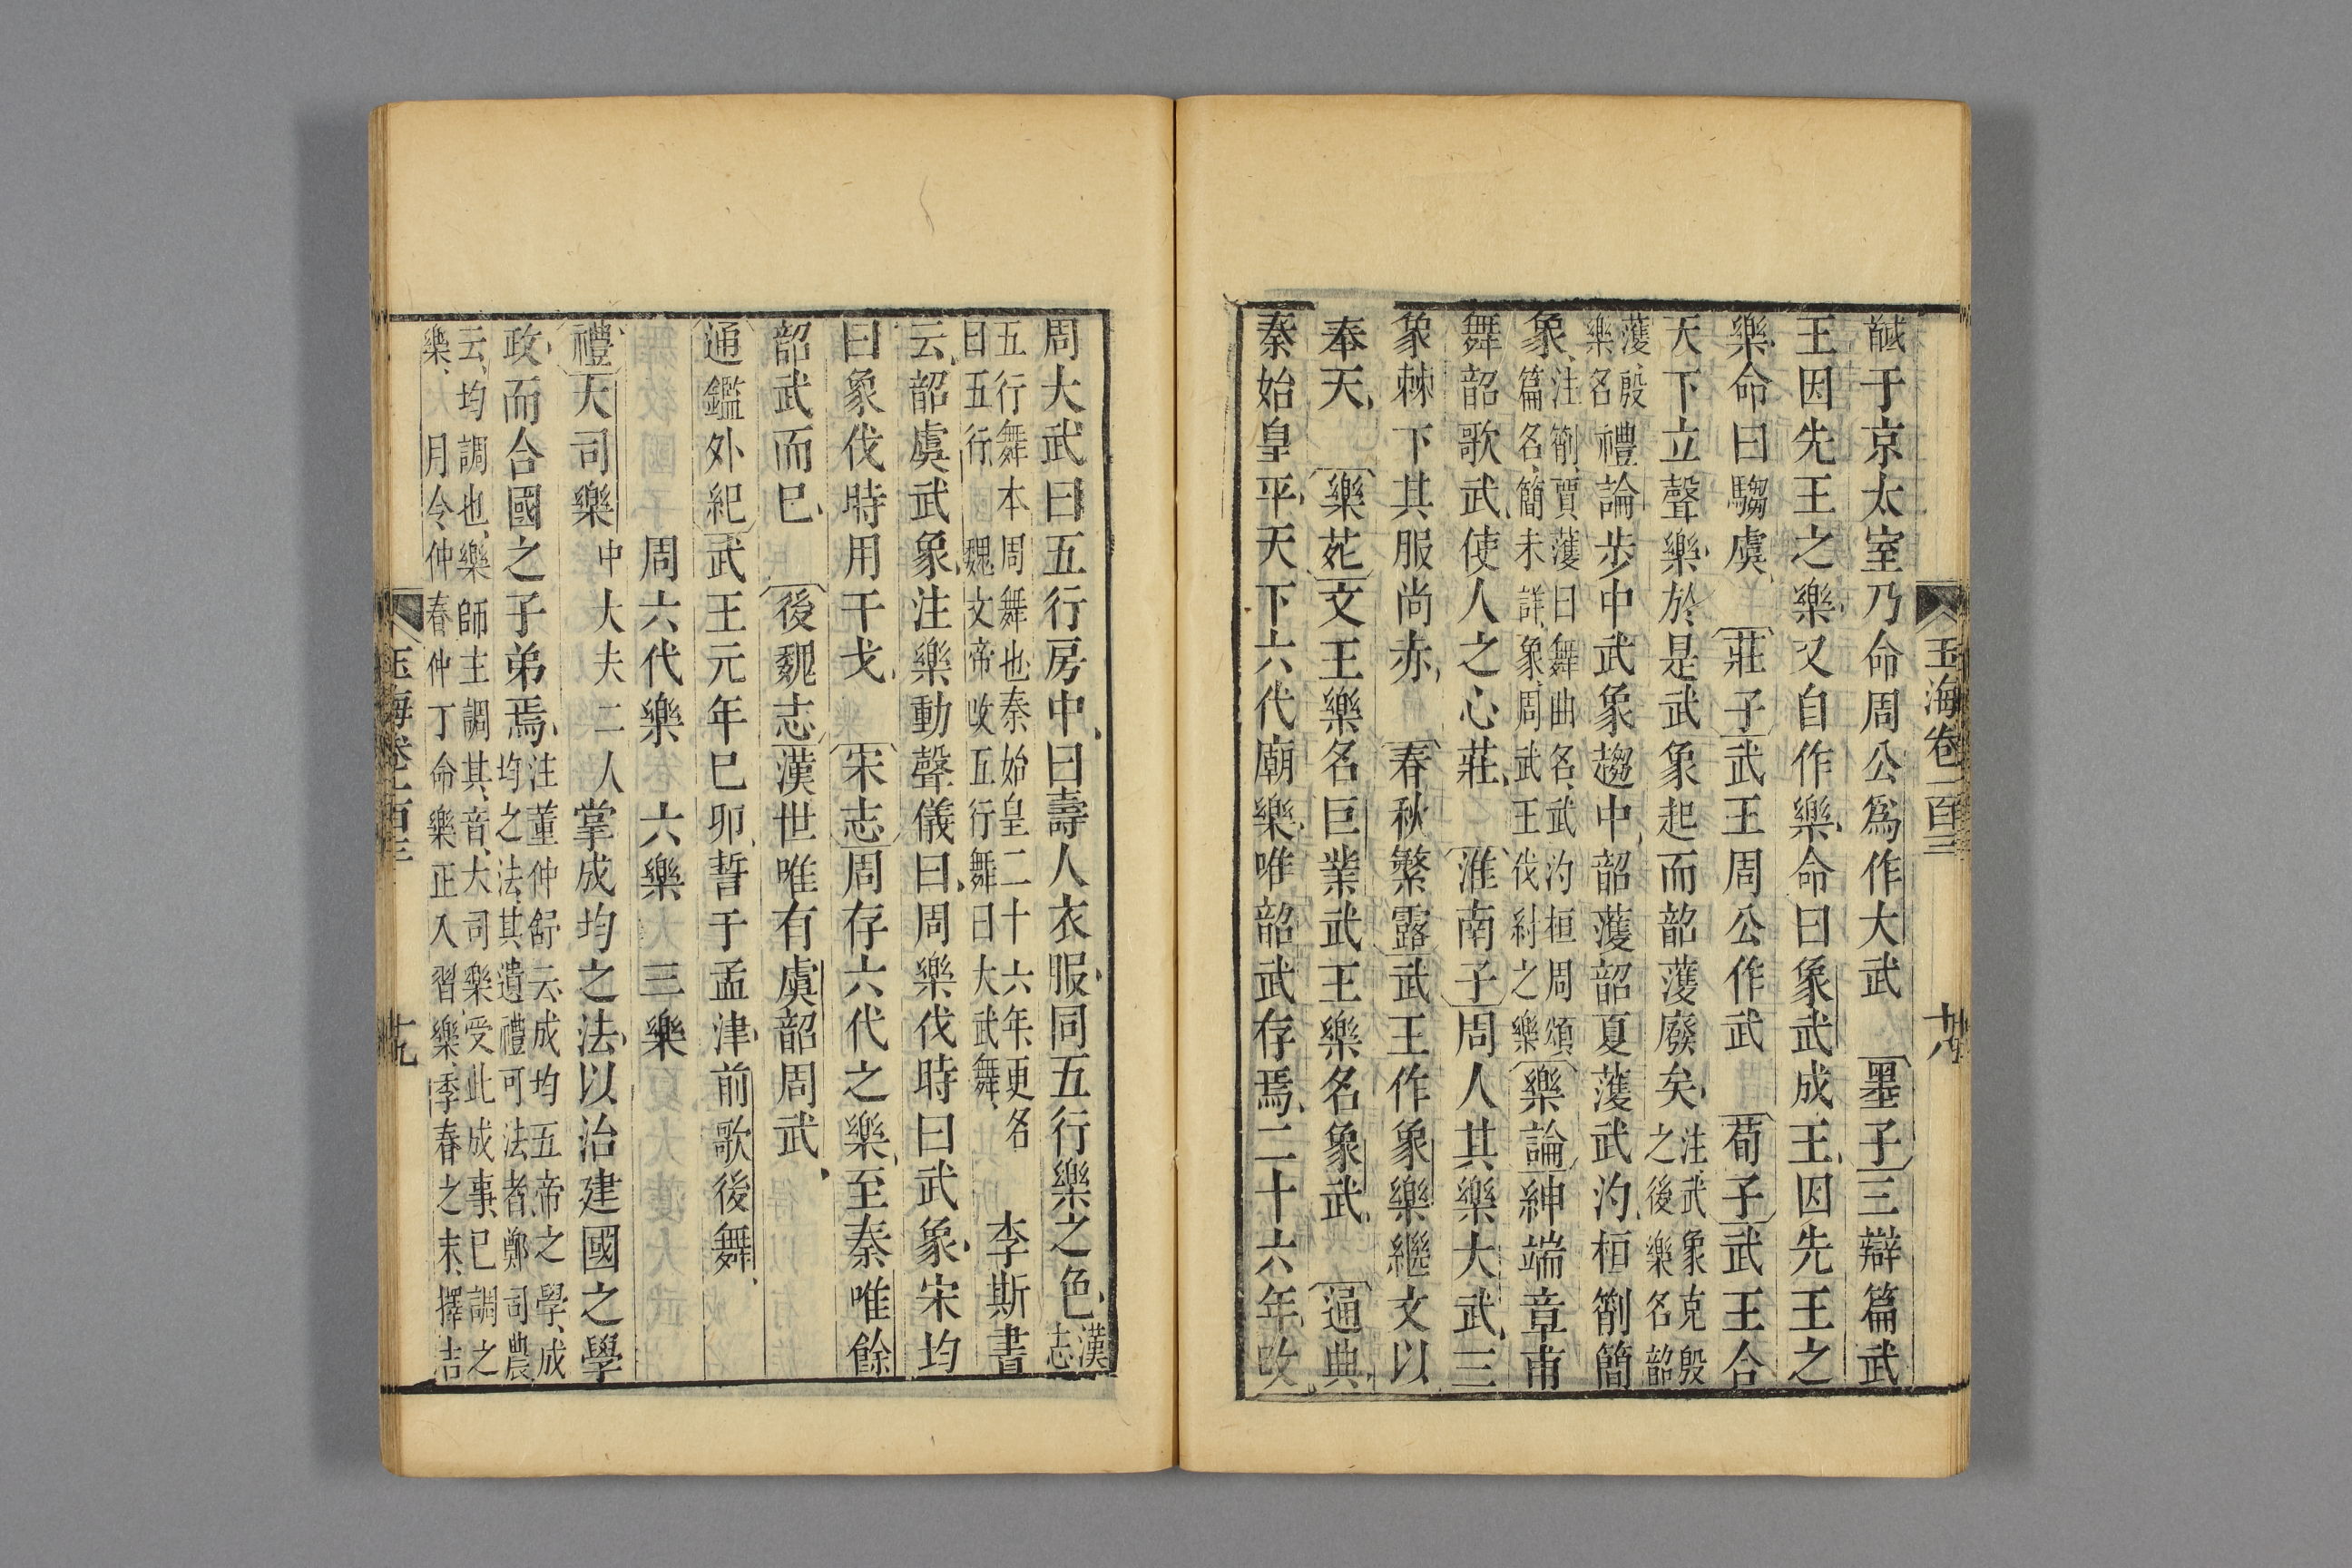 馘于京太室乃命周公為作大武　墨子三辯篇武
王因先王之樂又自作樂命曰象武成王因先王之
樂命曰騶虞　莊子武王周公作武　荀子武王合
天下立聲樂於是武象起而韶濩廢矣注武象克殷
之後樂名韶
濩殷
樂名
禮論步中武象趨中韶濩韶夏濩武汋桓箾簡
象注箾賈濩曰舞曲名武汋桓周頌
篇名簡未詳象周武王伐紂之樂
樂論紳端章甫
舞韶歌武使人之心莊　淮南子周人其樂大武三
象棘下其服尚赤　春秋繁露武王作象樂繼文以
奉天　樂苑文王樂名巨業武王樂名象武　通典
秦始皇平天下六代廟樂唯韶武存焉二十六年改
玉海卷一百三　十八
周大武曰五行房中曰壽人衣服同五行樂之色漢
志
五行舞本周舞也秦始皇二十六年更名
曰五行魏文帝改五行舞曰大武舞
李斯書
云韶虞武象注樂動聲儀曰周樂伐時曰武象宋均
曰象伐時用干戈　宋志周存六代之樂至秦唯餘
韶武而已　後魏志漢世唯有虞韶周武
通鑑外紀武王元年巳卯誓于孟津前歌後舞
周六代樂　六樂　三樂
禮大司樂中大夫二人掌成均之法以治建國之學
政而合國之子弟焉注董仲舒云成均五帝之學成
均之法其遺禮可法者鄭司農
云均調也樂師主調其音大司樂受此成事巳調之
樂　月令仲春仲丁命樂正入習樂季春之末擇吉
玉海卷一百三